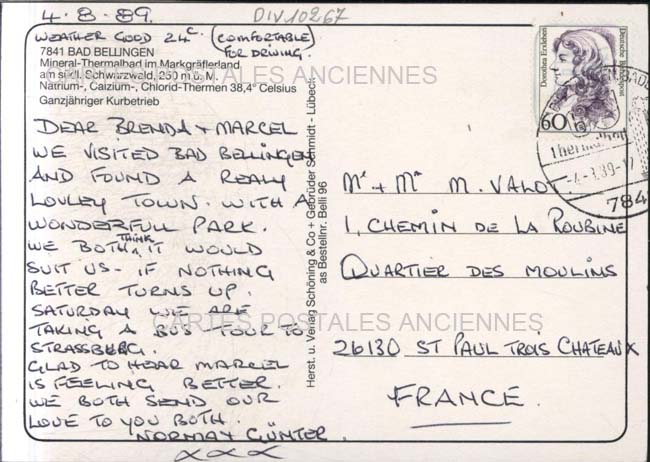 4.8.89.
DIV10267
WEATHER GOOD 24c. (COMFORTABLE
FOR DRIVING.)
7841 BAD BELLINGEN
Mineral-Thermalbad im Markgräflerland
am südl. Schwarzwald, 250 m ü. M.
Natrium-, Calzium-, Chlorid-Thermen 38,4° Celsius
Ganzjähriger Kurbetrieb
CARTES POSTALES ANCIENNES
DEAR BRENDA + MARCEL
WE VISITED BAD BELLINGEN
AND FOUND A REALY
LOVLEY TOWN. WITH A
WONDERFULL PARK.
WE BOTH THINK IT WOULD
SUIT US - IF NOTHING
BETTER TURNS UP.
SATURDAY WE ARE
TAKING A BUS TOUR TO
STRASSBERG.
GLAD TO HEAR MARCEL
IS FEELING BETTER.
WE BOTH SEND OUR
LOVE TO YOU BOTH.
NORMA + GÜNTER.
XXX
Herst. u. Verlag Schöning & Co + Gebrüder Schmidt - Lübeck
as Bestellnr. Belli 96
Dorothea Erxleben
Deutsche Bundespost
60
Therm
784
Mr + Mme M. VALOT.
1, CHEMIN DE LA ROUBINE
QUARTIER DES MOULINS
CARTES POSTALES ANCIENNES
26130 ST PAUL TROIS CHATEAUX
FRANCE.